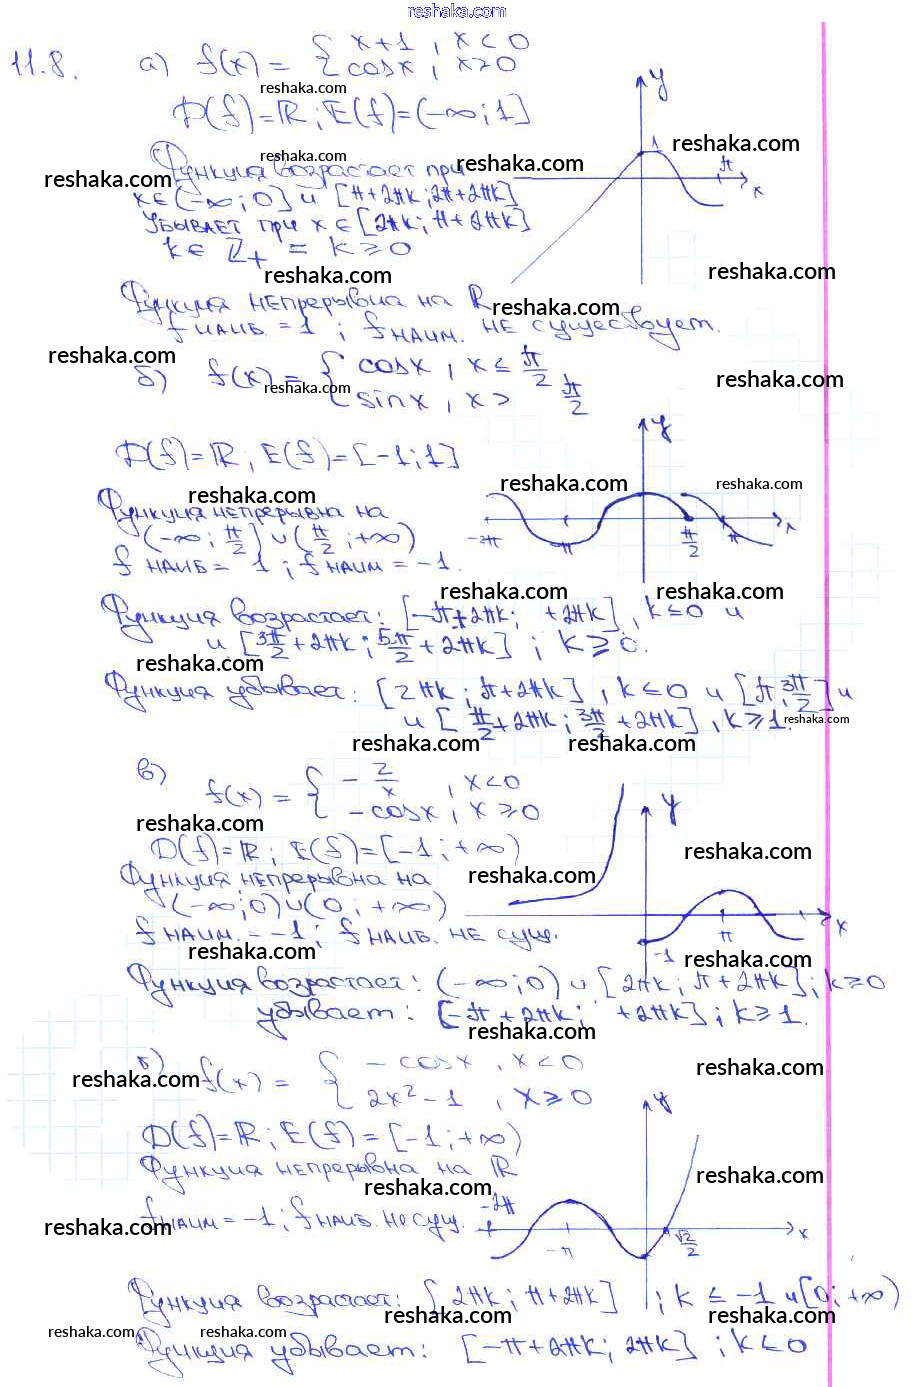 reshaka.com
11.8. а) f(x) = { x+1 , x < 0
cosx , x > 0
reshaka.com
D(f)=ℝ ; E(f)=(-∞;1]
y
1
π
x
reshaka.com
reshaka.com
reshaka.com
reshaka.com
Функция возрастает при
x∈(-∞;0] и [π+2πk;2π+2πk]
Убывает при x∈[2πk; π+2πk]
k∈ ℤ₊ = k≥0
reshaka.com
reshaka.com
Функция непрерывна на ℝ
reshaka.com
f наиб. = 1 ; f наим. не существует.
reshaka.com
reshaka.com
б) f(x) = { cosx , x ≤ π/2
sinx , x > π/2
reshaka.com
y
D(f)=ℝ ; E(f)=[-1;1]
reshaka.com
reshaka.com
reshaka.com
Функция непрерывна на
(-∞; π/2] ∪ (π/2 ; +∞)
-2π
-π
π/2
π
x
f наиб = 1 ; f наим = -1.
reshaka.com
reshaka.com
Функция возрастает: [-π+2πk; +2πk] , k≤0 и
и [3π/2 + 2πk ; 5π/2 + 2πk] ; k ≥ 0.
reshaka.com
Функция убывает: [2πk ; π+2πk] , k≤0 и [π; 3π/2] и
и [π/2 + 2πk ; 3π/2 + 2πk] , k≥1.
reshaka.com
reshaka.com
reshaka.com
в) f(x) = { - 2/x , x<0
- cosx , x ≥ 0
y
reshaka.com
D(f)=ℝ ; E(f)=[-1 ; +∞)
reshaka.com
Функция непрерывна на
reshaka.com
(-∞;0) ∪ (0 ; +∞)
f наим. = -1 ; f наиб. не сущ.
π
x
-1
reshaka.com
reshaka.com
Функция возрастает: (-∞;0) ∪ [2πk ; π+2πk] ; k≥0
убывает: [-π + 2πk; +2πk] ; k≥1.
reshaka.com
г) f(x) = { - cosx , x<0
2x²-1 , x ≥ 0
reshaka.com
reshaka.com
y
D(f)=ℝ ; E(f)=[-1 ; +∞)
Функция непрерывна на ℝ
reshaka.com
reshaka.com
f наим = -1 ; f наиб. не сущ.
reshaka.com
-2π
-π
√2/2
x
Функция возрастает: [2πk ; π+2πk] ; k ≤ -1 и [0 ; +∞)
reshaka.com
reshaka.com
reshaka.com
reshaka.com
Функция убывает: [-π+2πk; 2πk] ; k≤0